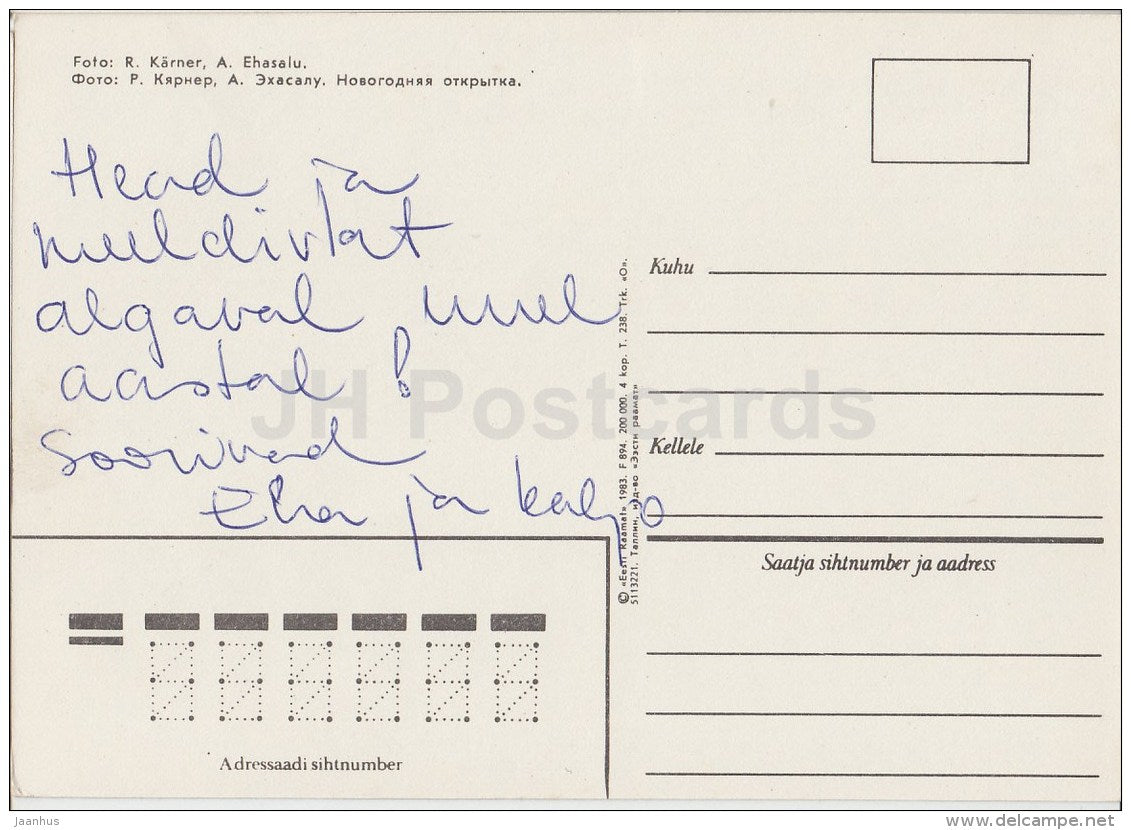 Foto: R. Kärner, A. Ehasalu.
Фото: Р. Кярнер, А. Эхасалу. Новогодняя открытка.
Head ja
meeldivat
algaval uuel
aastal!
Soovivad
Eha ja Kaljo
Adressaadi sihtnumber
© «Eesti Raamat» 1983. F 894. 200 000. 4 kop. T. 238. Trk. «O».
5113221. Таллин, изд-во «Ээсти раамат»
Kuhu
Kellele
Saatja sihtnumber ja aadress
JH Postcards
Jaanhus
delcampe.net